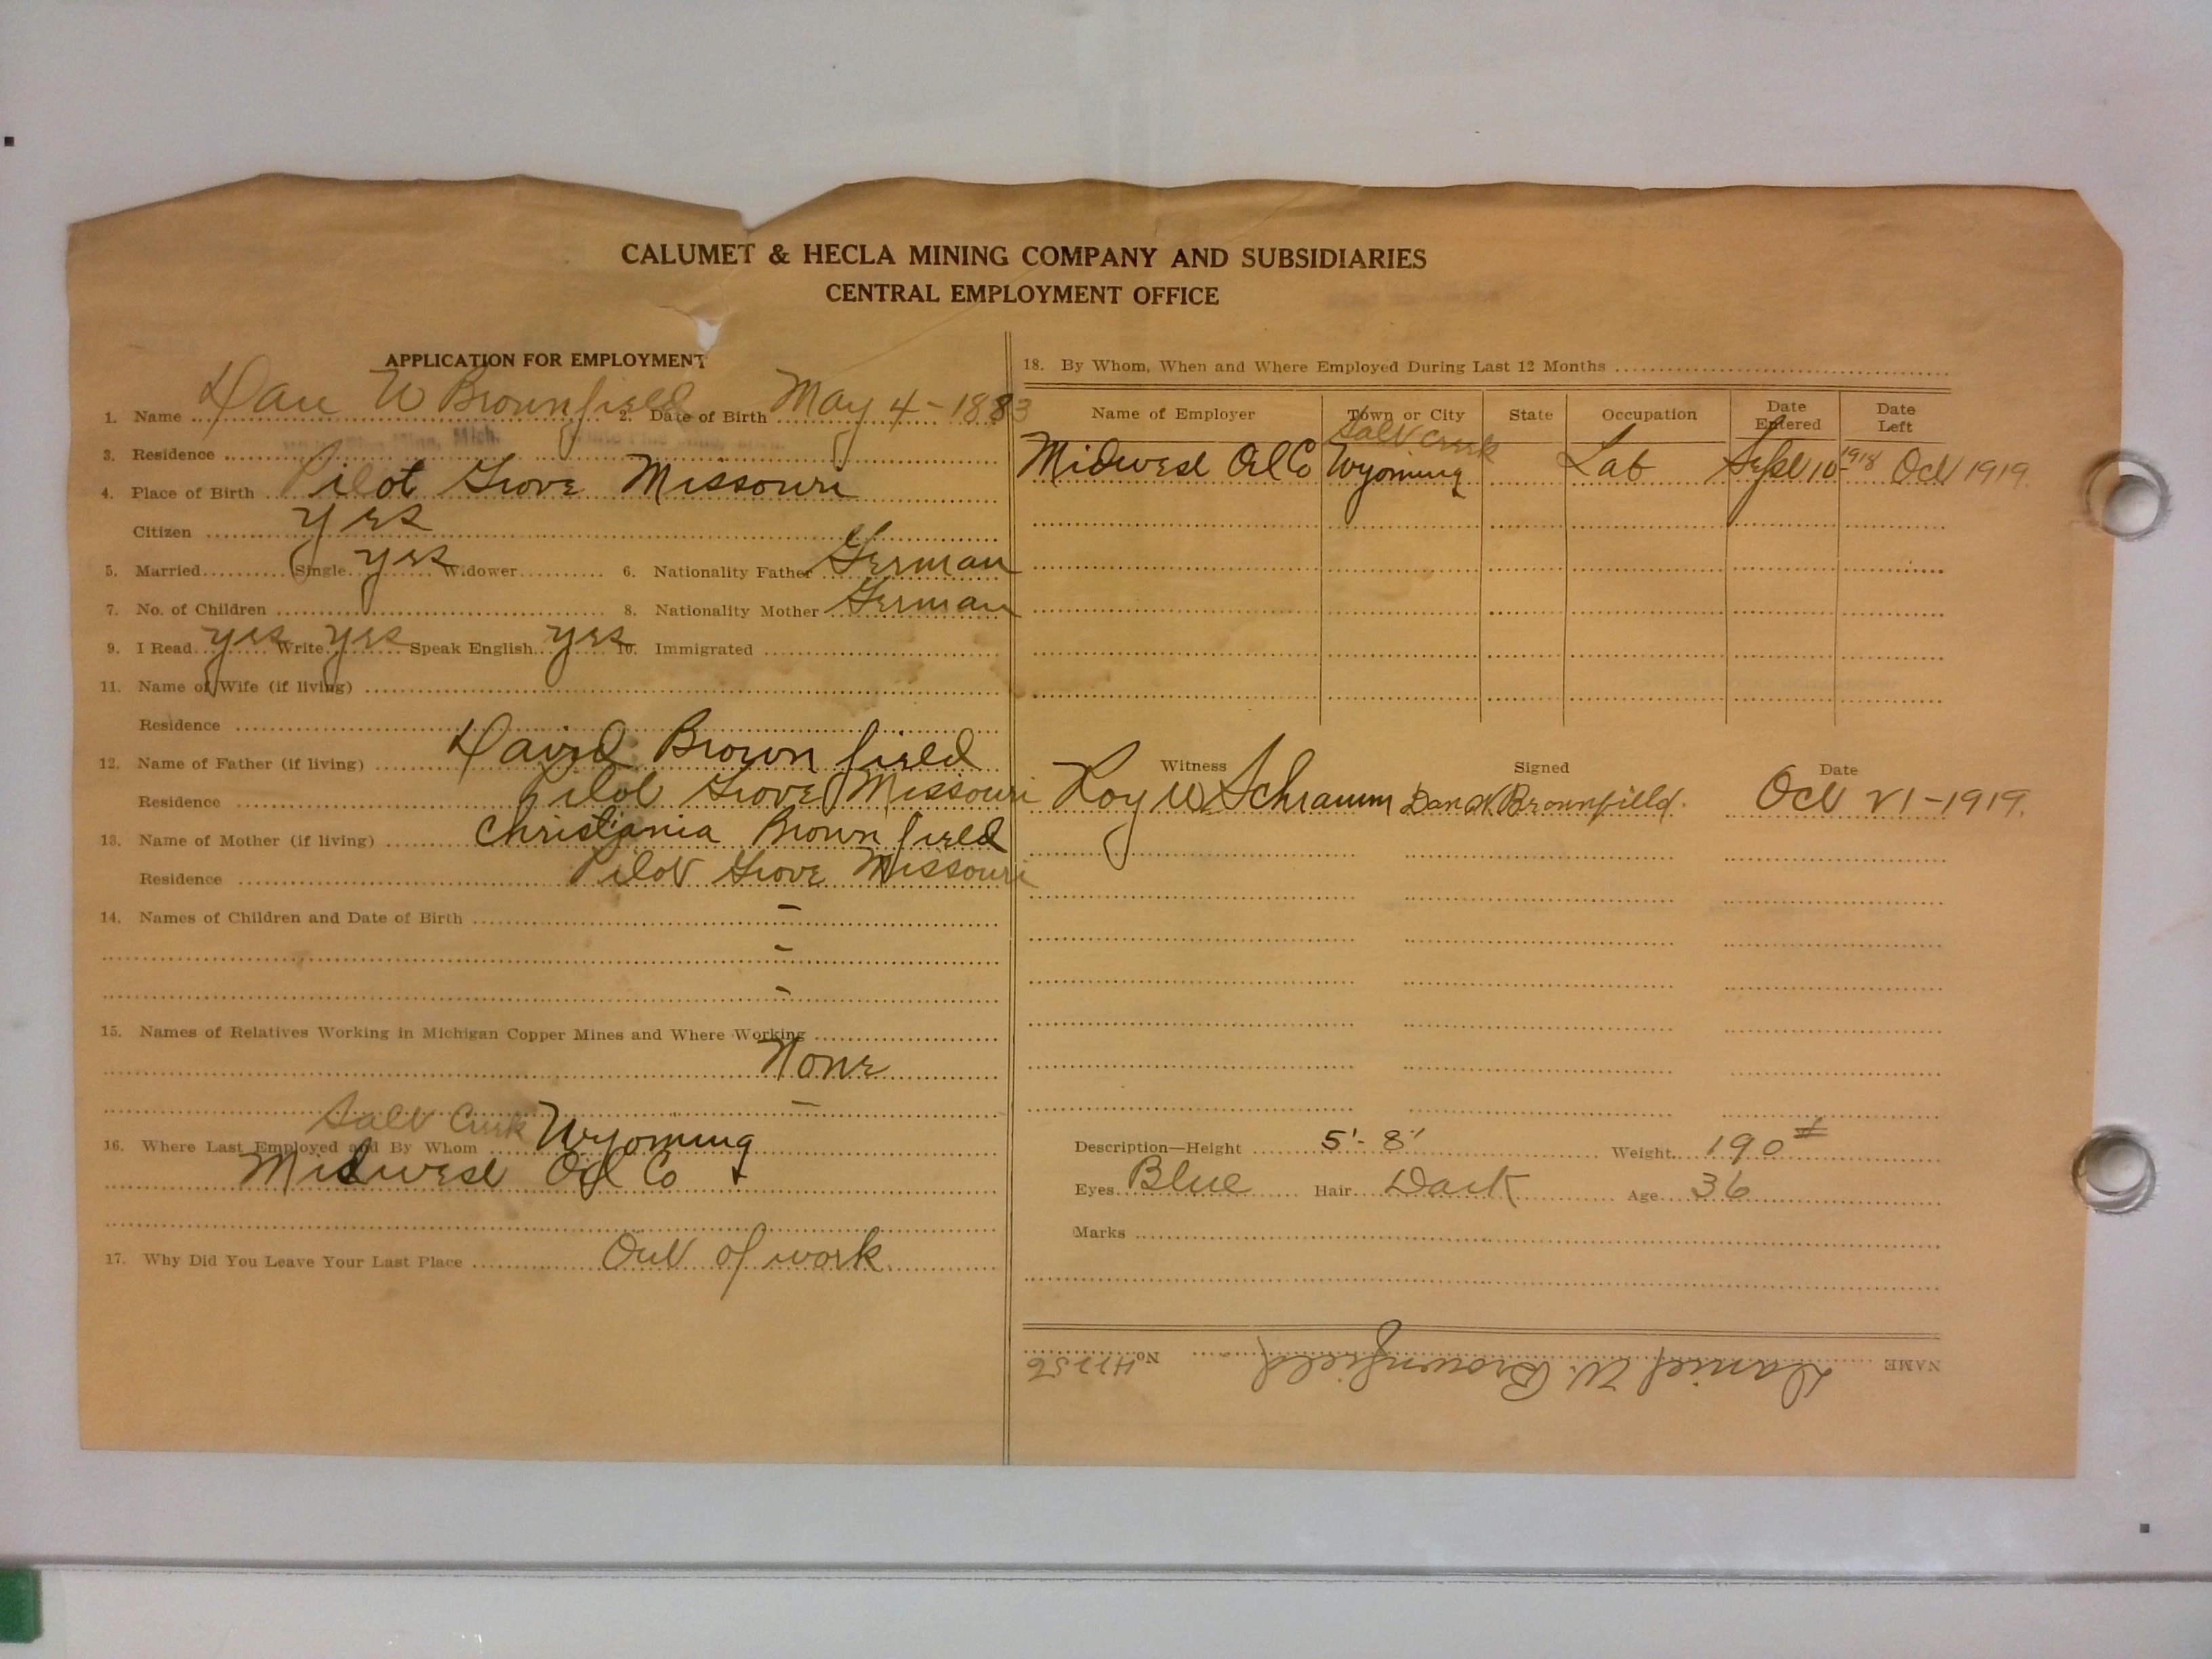 CALUMET & HECLA MINING COMPANY AND SUBSIDIARIES
CENTRAL EMPLOYMENT OFFICE
APPLICATION FOR EMPLOYMENT
1. Name Dan W Brownfield 2. Date of Birth May 4-1883
3. Residence Mich.
4. Place of Birth Pilot Grove Missouri
Citizen yes
5. Married Single yes Widower 6. Nationality Father German
7. No. of Children 8. Nationality Mother German
9. I Read yes Write yes Speak English yes 10. Immigrated
11. Name of Wife (if living)
Residence
12. Name of Father (if living) David Brownfield
Residence Pilot Grove Missouri
13. Name of Mother (if living) Christiania Brownfield
Residence Pilot Grove Missouri
14. Names of Children and Date of Birth -
-
-
15. Names of Relatives Working in Michigan Copper Mines and Where Working
None
-
16. Where Last Employed and By Whom Salt Creek Wyoming
Midwest Oil Co
17. Why Did You Leave Your Last Place Out of work
18. By Whom, When and Where Employed During Last 12 Months
Name of Employer Town or City State Occupation Date Entered Date Left
Midwest Oil Co Salt Creek Wyoming Lab Sept 10-1918 Oct 1919
Witness Signed Date
Roy W Schramm Dan W. Brownfield. Oct 21-1919.
Description—Height 5'-8" Weight 190#
Eyes Blue Hair Dark Age 36
Marks
NAME Daniel W. Brownfield No.